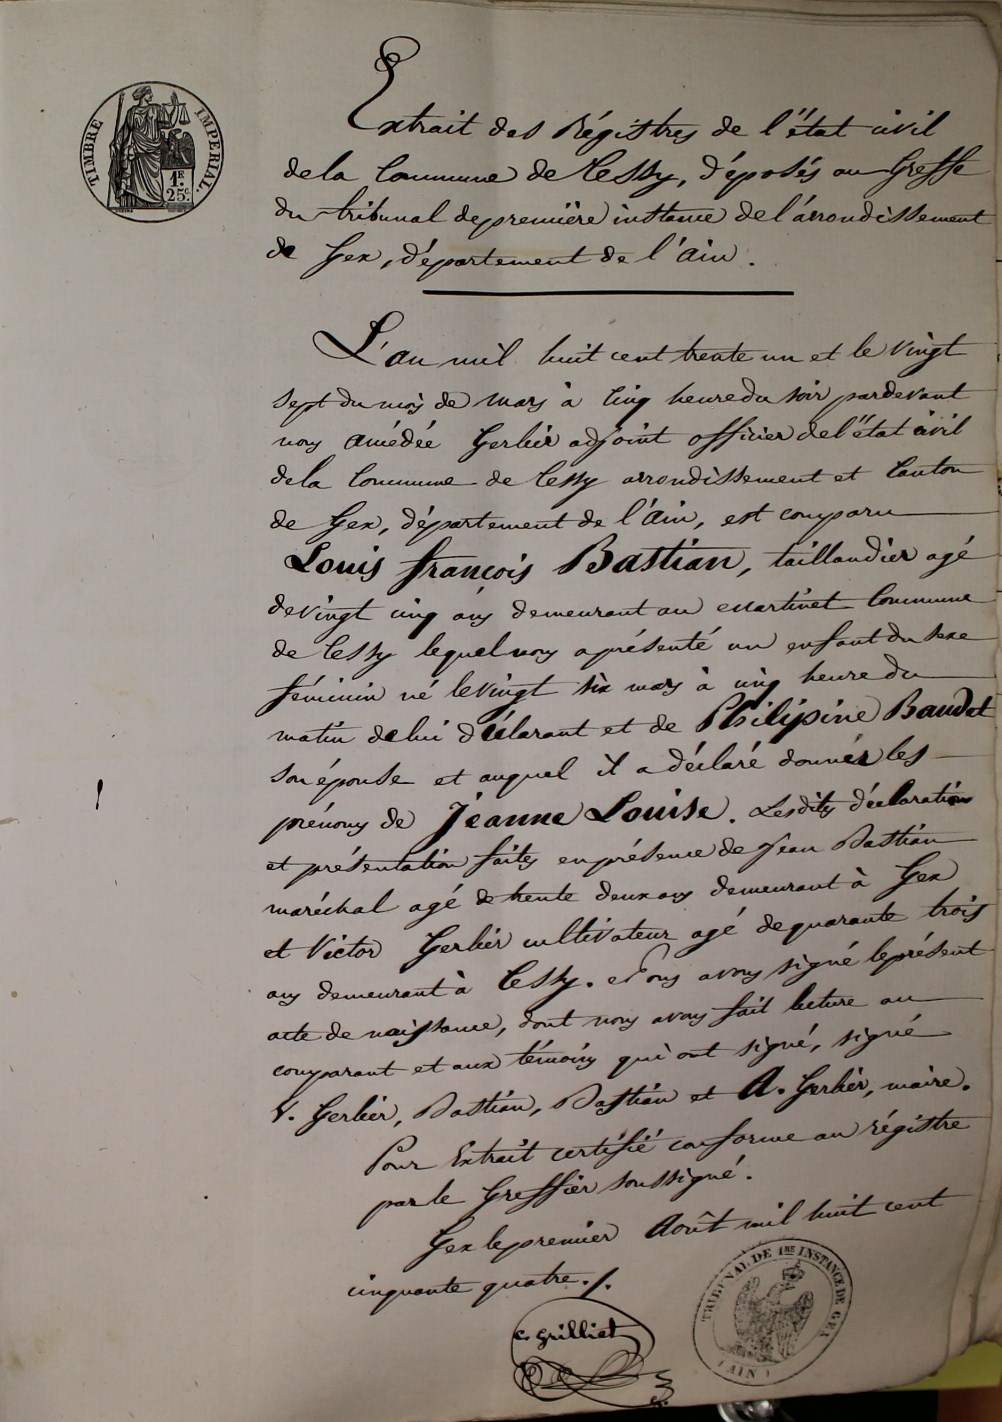 TIMBRE IMPERIAL.
1F.
25c.
Extrait des Régistres de l'état civil
de la Commune de Cessy, déposés au Greffe
du tribunal de première instance de l'arrondissement
de Gex, département de l'ain.
L'an mil huit cent trente un et le vingt
sept du mois de mars à cinq heure du soir pardevant
nous amédée Gerlier adjoint officier de l'état civil
de la Commune de Cessy arrondissement et Canton
de Gex, département de l'Ain, est comparu
Louis françois Bastian, taillandier agé
de vingt cinq ans demeurant au martinet Commune
de Cessy lequel nous a présenté un enfant du sexe
féminin né le vingt six mars à cinq heure du
matin de lui déclarant et de Philipine Baudet
son épouse et auquel il a déclaré donner les
prénoms de Jeanne Louise. Lesdits déclaration
et présentation faites en présence de Jean Bastian
maréchal agé de trente deux ans demeurant à Gex
et Victor Gerlier cultivateur agé de quarante trois
ans demeurant à Cessy. Nous avons signé le présent
acte de naissance, dont nous avons fait lecture au
comparant et aux témoins qui ont signé, signé
V. Gerlier, Bastian, Bastian et A. Gerlier, maire.
Pour Extrait certifié conforme au régistre
par le Greffier soussigné.
Gex le premier Août mil huit cent
cinquante quatre./.
C. Grilliet
TRIBUNAL DE 1RE INSTANCE DE GEX
(AIN)